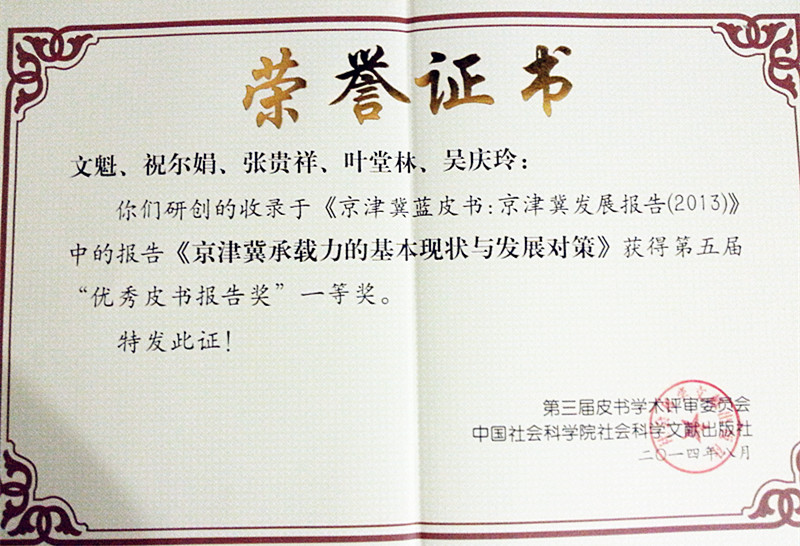 荣誉证书
文魁、祝尔娟、张贵祥、叶堂林、吴庆玲：
你们研创的收录于《京津冀蓝皮书:京津冀发展报告(2013)》
中的报告《京津冀承载力的基本现状与发展对策》获得第五届
“优秀皮书报告奖”一等奖。
特发此证！
第三届皮书学术评审委员会
中国社会科学院社会科学文献出版社
二〇一四年八月